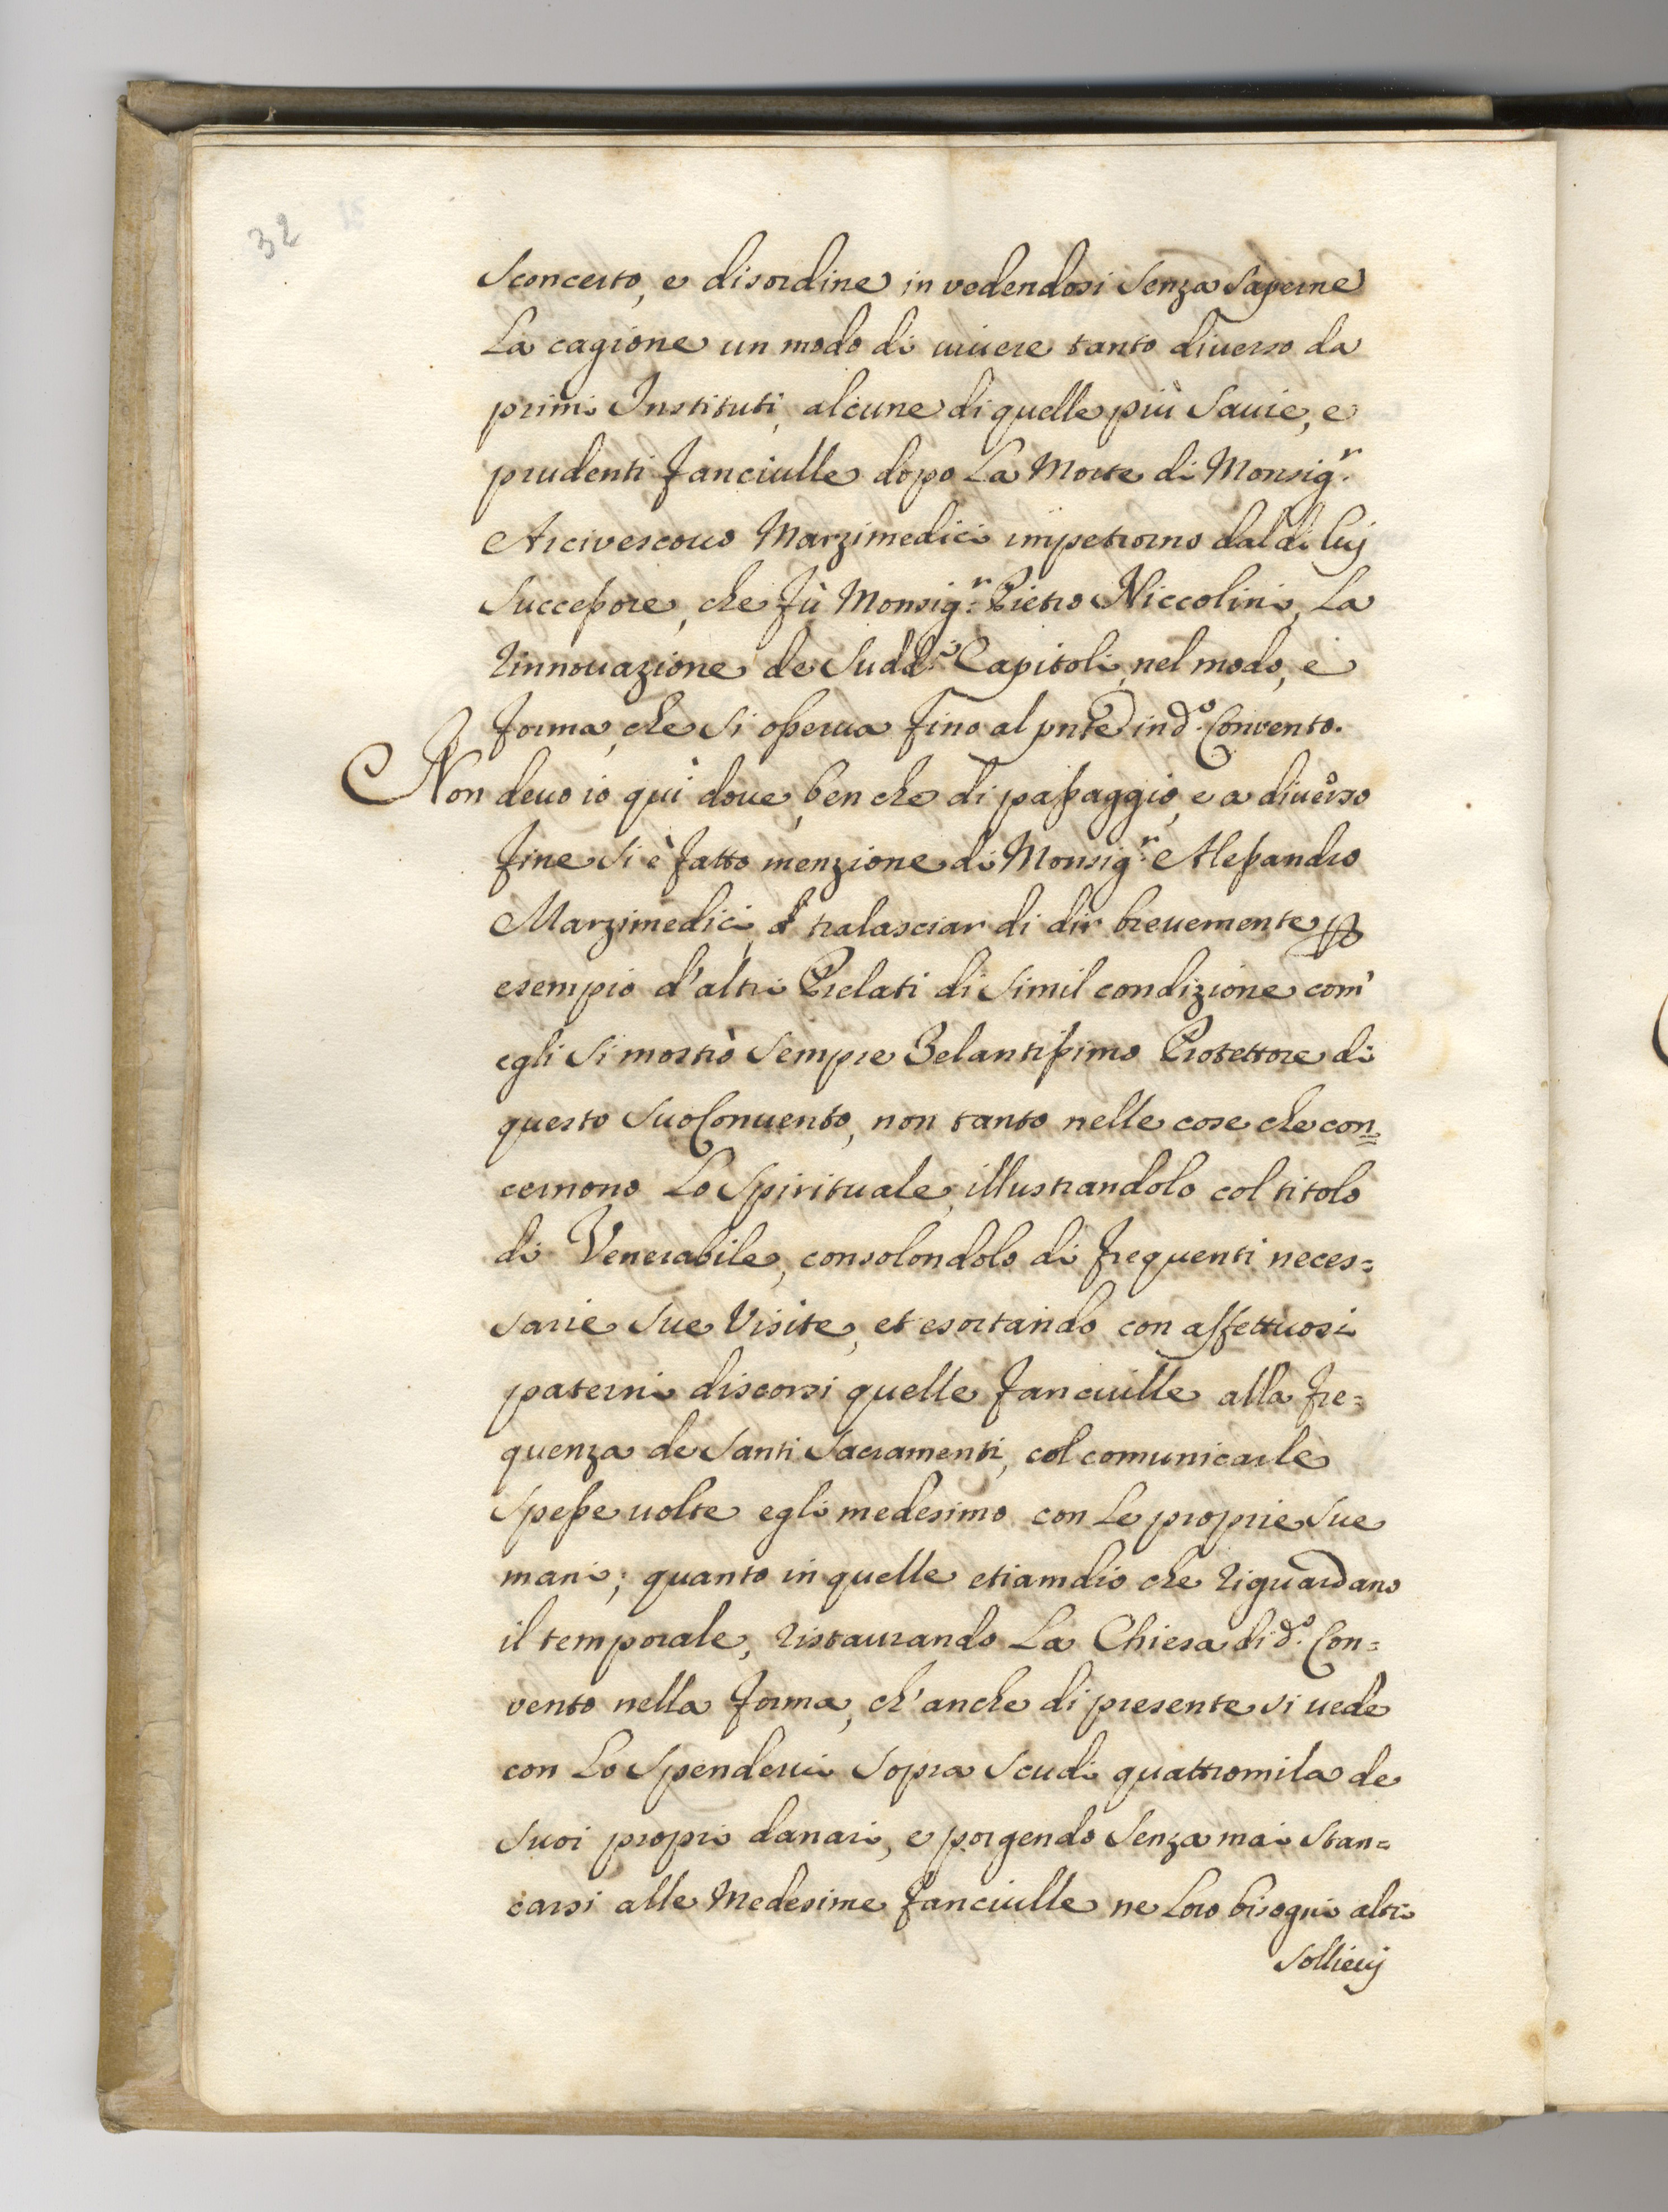 32
Sconcerto, e disordine in vedendosi Senza Saperne
La cagione un modo di uiuere tanto diuerso da
primi Instituti, alcune di quelle più Sauie, e
prudenti fanciulle dopo La Morte di Monsig.r
Arcivescouo Marzimedici impetrorno dal di lui
Successore, che fù Monsig.r Pietro Niccolini, La
rinnouazione de Sudd.i Capitoli, nel modo, e
forma, che Si osserua fino al pnte in d.o Convento.
Non deuo io qui doue, ben che di passaggio, e a diuerso
fine Si è fatto menzione di Monsig.r Alessandro
Marzimedici, tralasciar di dir breuemente
esempio d'altri Prelati di Simil condizione com'
egli Si mostrò Sempre Zelantissimo Protettore di
questo Suo Conuento, non tanto nelle cose che con=
cernono Lo Spirituale, illustrandolo col titolo
di Venerabile, consolondolo di frequenti neces=
sarie Sue Visite, et esortando con affettuosi
paterni discorsi quelle fanciulle alla fre=
quenza de Santi Sacramenti, col comunicarle
Spesse uolte egli medesimo con Le proprie Sue
mani; quanto in quelle etiamdio che riguardano
il temporale, ristaurando La Chiesa di d.o Con=
vento nella forma, ch'anche di presente si uede
con Lo Spenderui Sopra Scudi quattromila de
Suoi propri danari, e porgendo Senza mai Stan=
carsi alle Medesime fanciulle ne Loro bisogni altri
Sollieuj